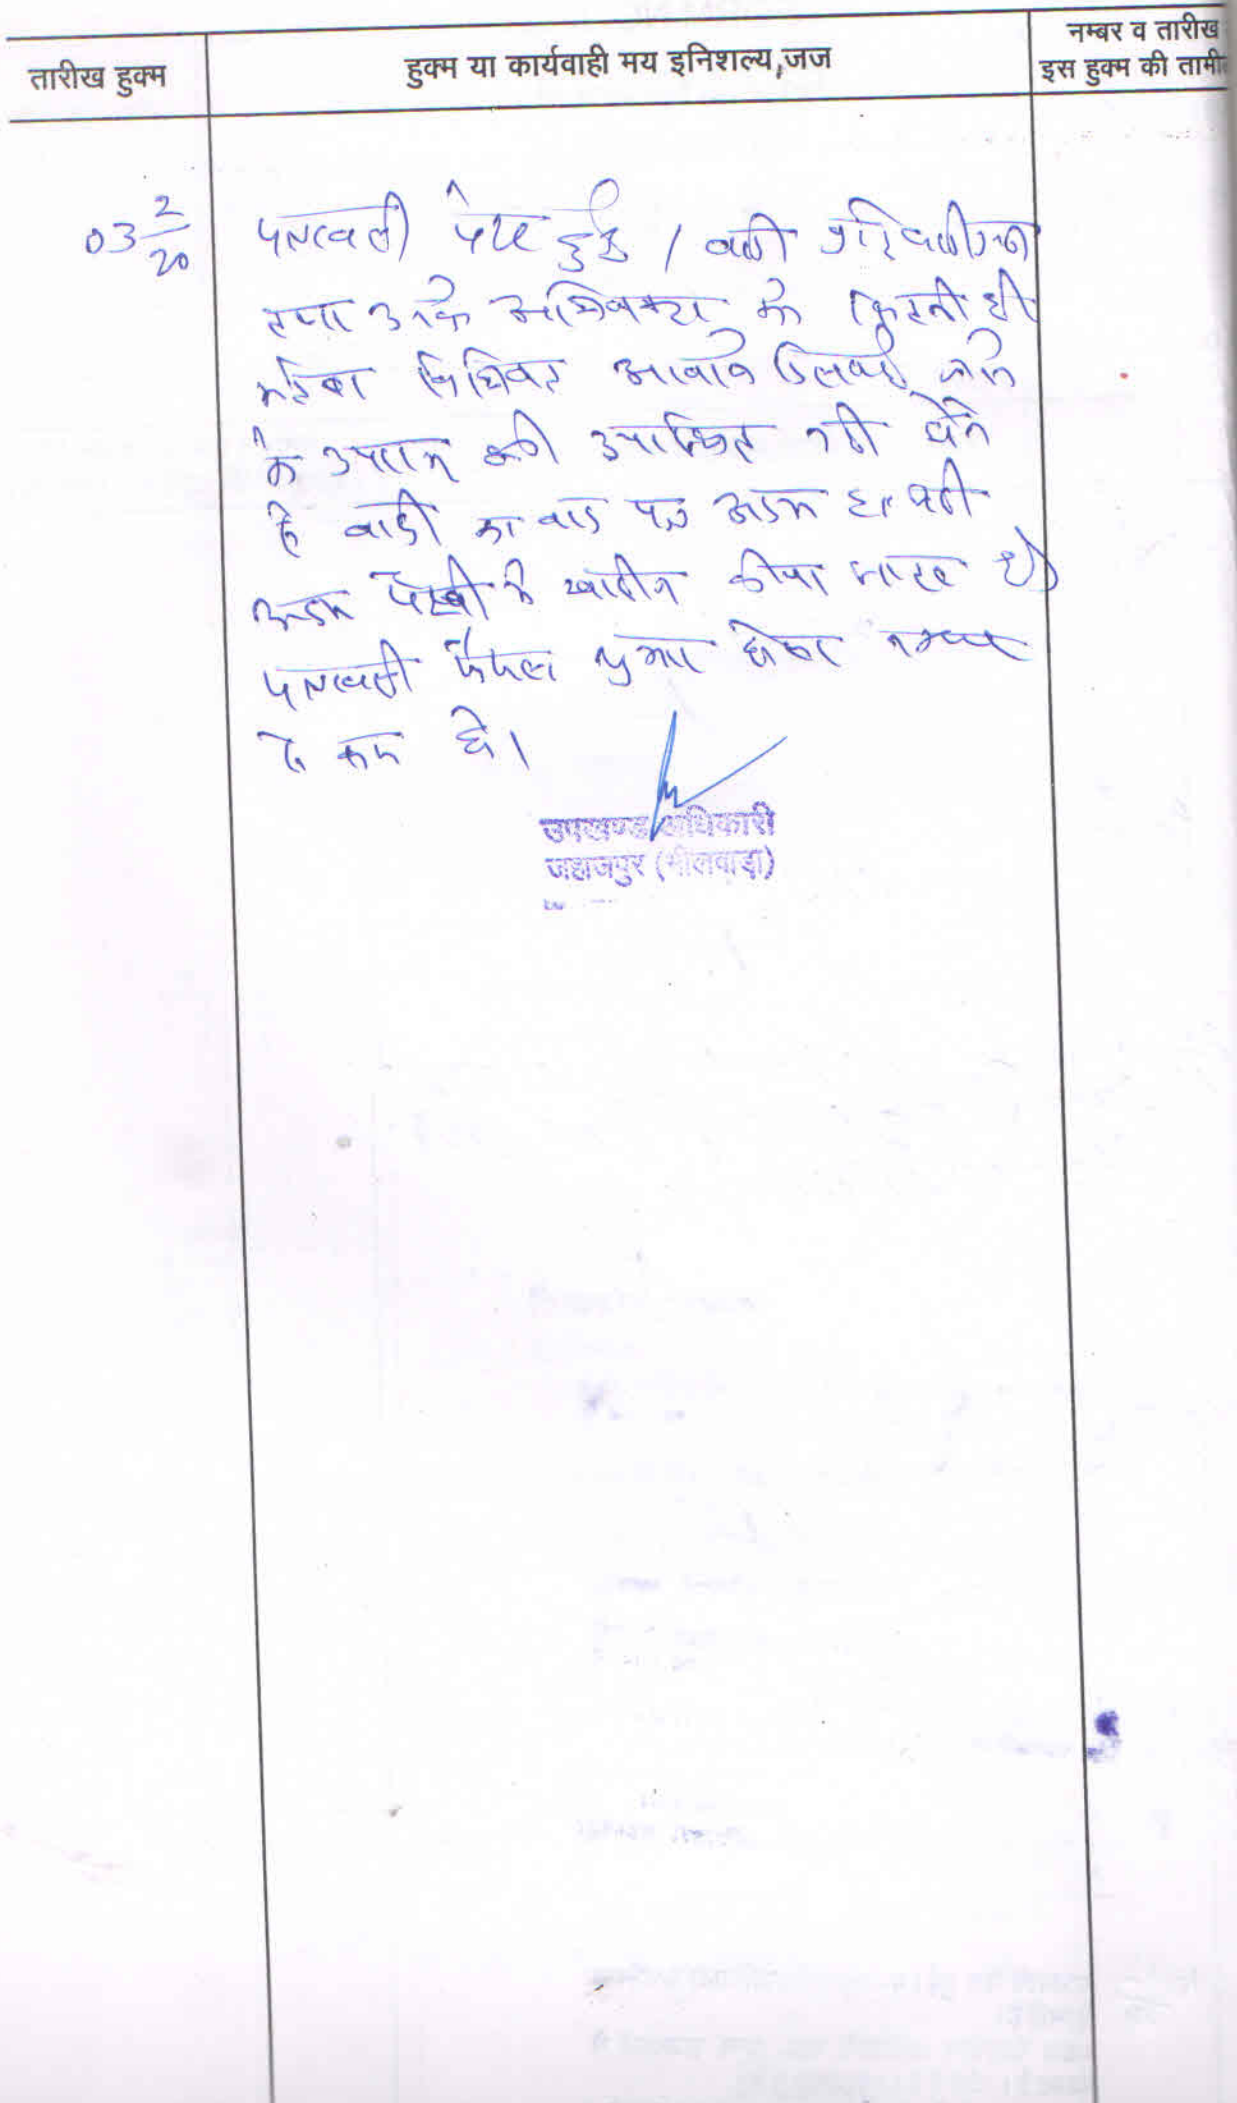 नम्बर व तारीख
तारीख हुक्म
हुक्म या कार्यवाही मय इनिशल्य,जज
इस हुक्म की तामी
03 2/20
पत्रावली पेश हुई / वादी प्रतिवादीगण
तथा उनके अधिवक्ता को कितनी ही
विधिवत आवाजे दिलवाई जाने
के उपरान्त कोई उपस्थित नही होने
से वादी का वाद पत्र अदम हाजरी
अदम पैरवी में खारीज कीया जाता है
पत्रावली फैसल शुमार होकर नम्बर
से कम हो।
उपखण्ड अधिकारी
जहाजपुर (भीलवाड़ा)